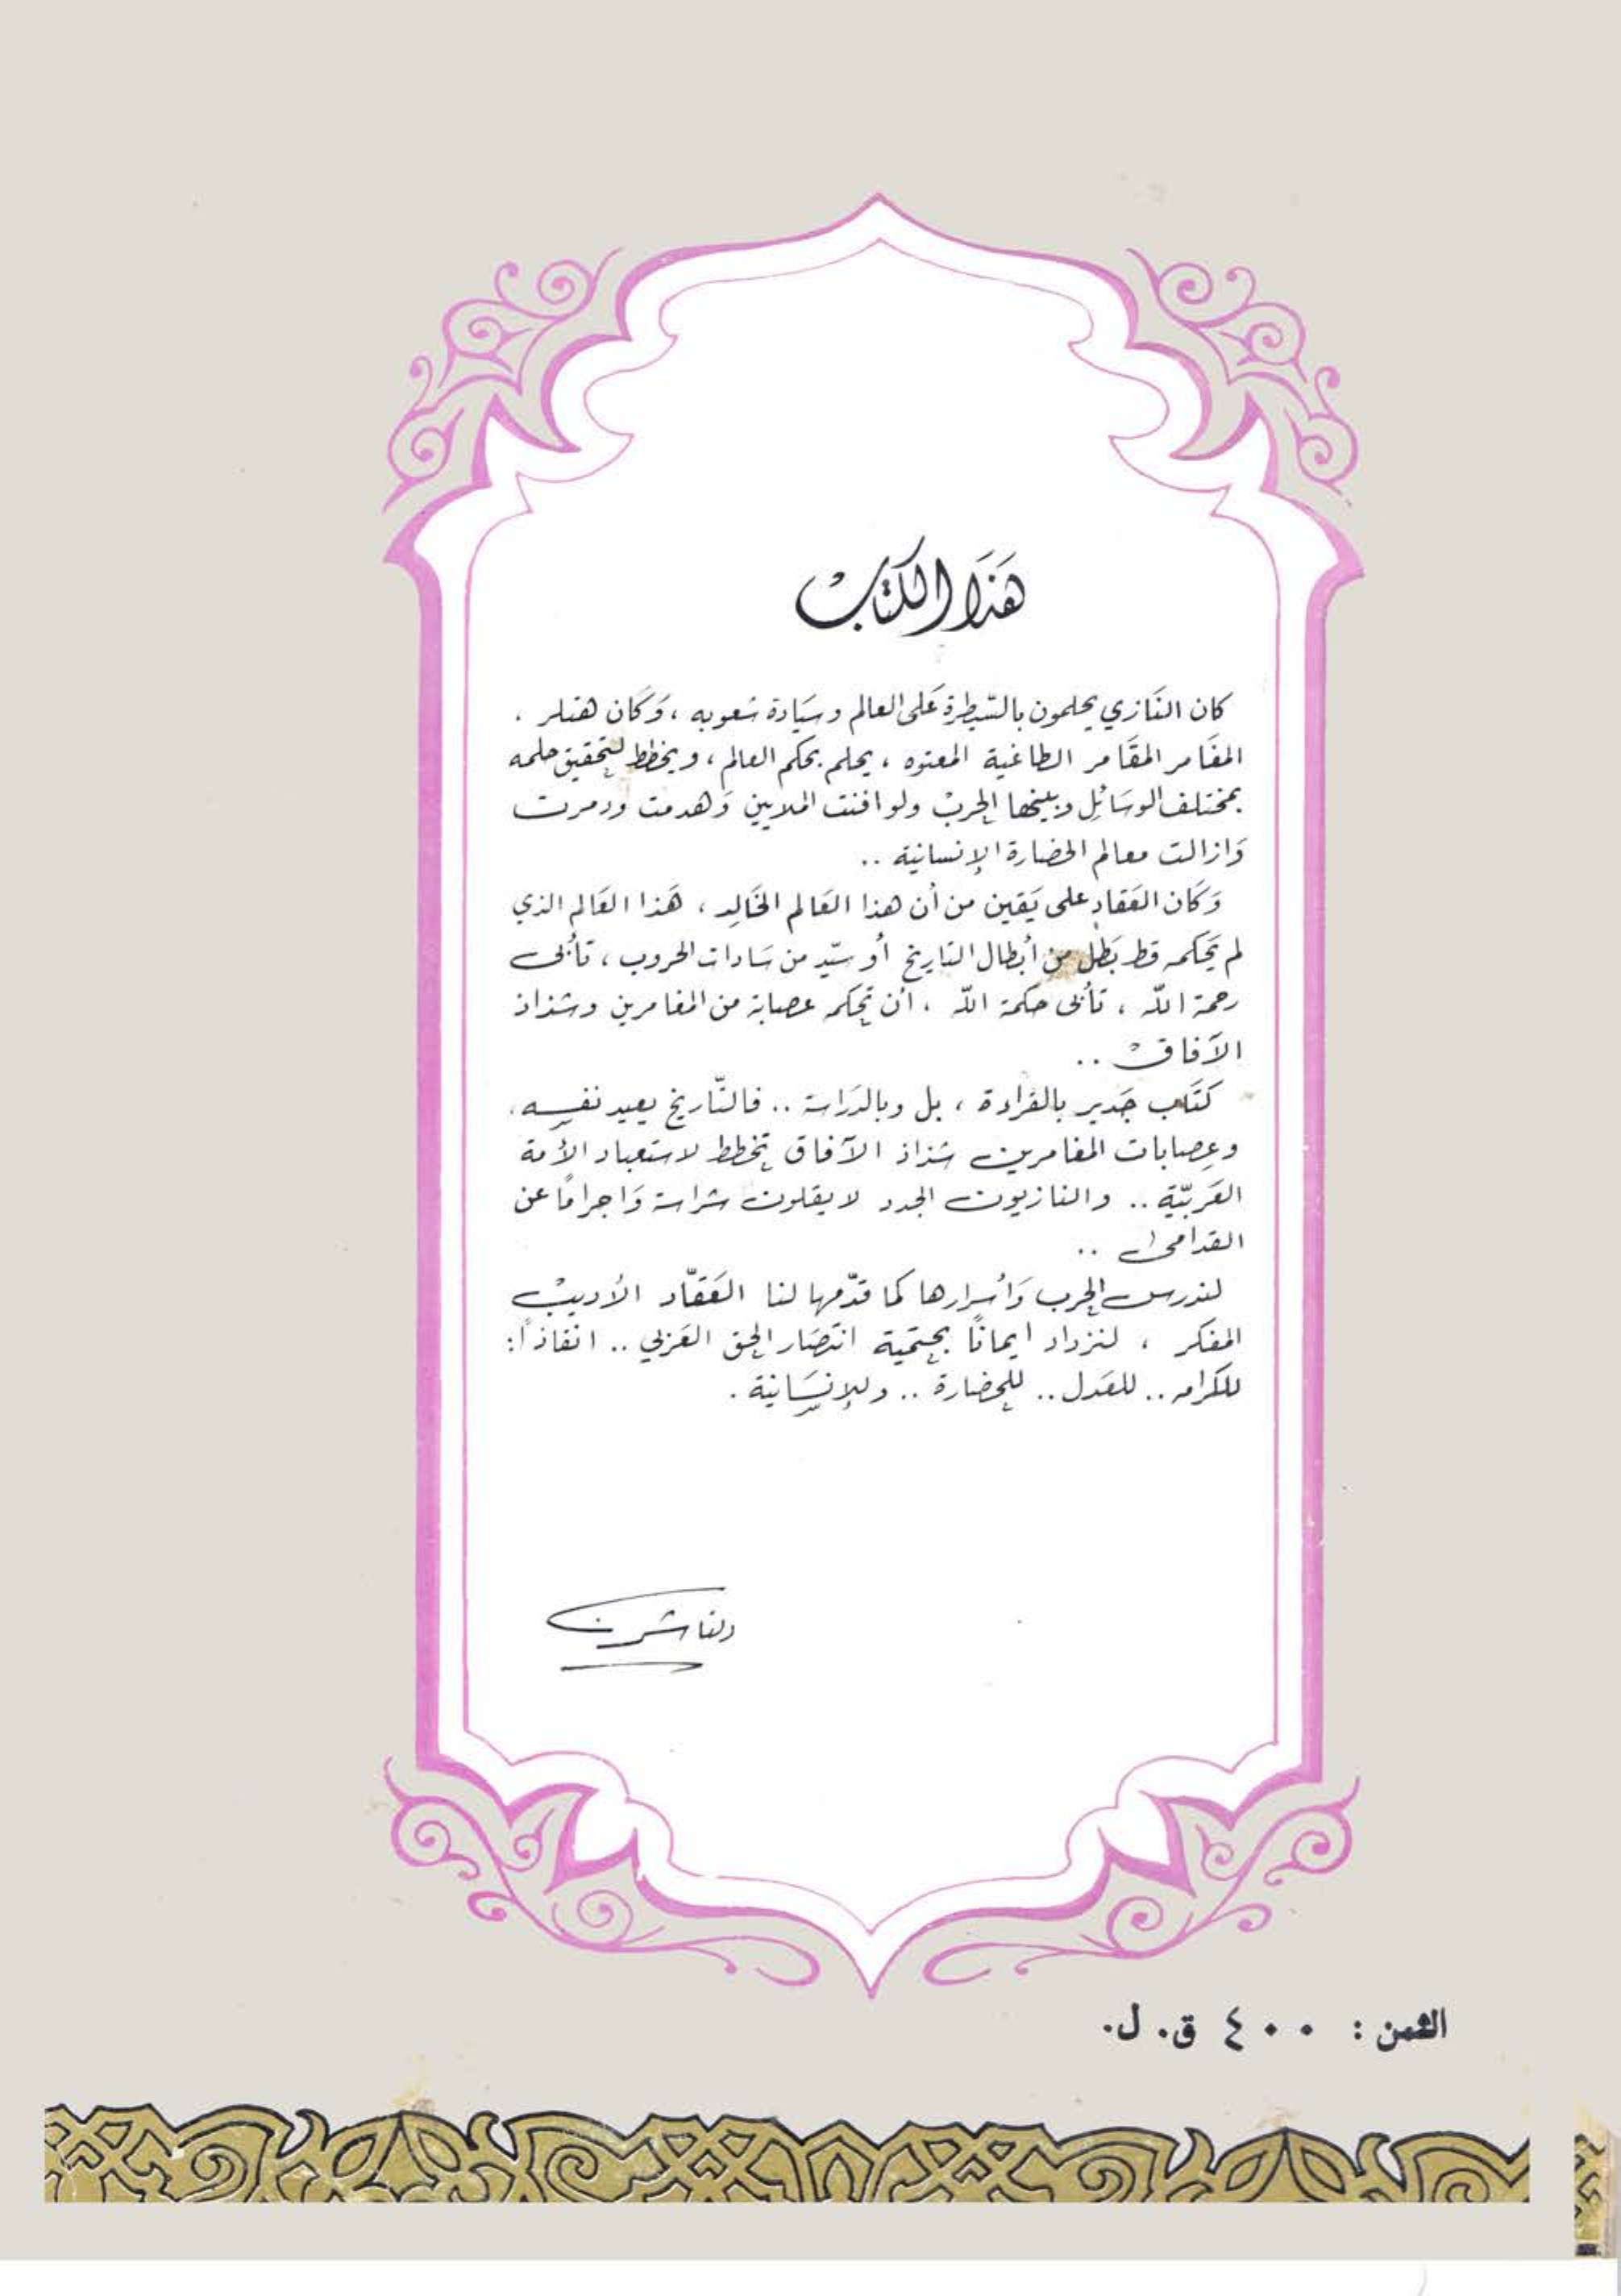 هَذَا الكتَابْ
كان النَازي يحلمون بالسّيطرة عَلى العالم وسيَادة شعوبه ، وَكَان هتلر .
المغَامر المقَامر الطاغية المعتوه ، يحلم بحكم العالم ، ويخطط لتحقيق حلمه
بمختلف الوسَائِل وبينها الحربْ ولو افنت الملايين وَهدمت ودمرت
وَازالت معالم الحضارة الإنسانية ..
وَكَان العَقاد على يَقين من أن هذا العَالم الخَالِد ، هَذا العَالم الذي
لم يَحكمه قط بَطل من أبطال التاريخ أو سيّد من سَادات الحروب ، تأبى
رحمة اللّه ، تأبى حكمة اللّه ، أن تحكمه عصابة من المغامرين وشذاذ
الآفاقْ ..
كتَاب جَدير بالقراءة ، بل وبالدَراسة .. فالتّاريخ يعيد نفسِه ،
وعِصابات المغامرين شذاذ الآفاق تخطط لاستعباد الأمة
العَربيّة .. والنازيون الجدد لا يقلون شراسة وَاجرامًا عن
القدامى ..
لندرس الحرب وَأسرارها كما قدّمها لنا العَقّاد الأديبْ
المفكر ، لنزداد ايمانًا بحتميَة انتصَار الحق العَربي .. انقاذًا :
للكرامه .. للعَدل .. للحضارة .. وللإنسَانية .
الناشرن
الثمن : ٤٠٠ ق. ل.